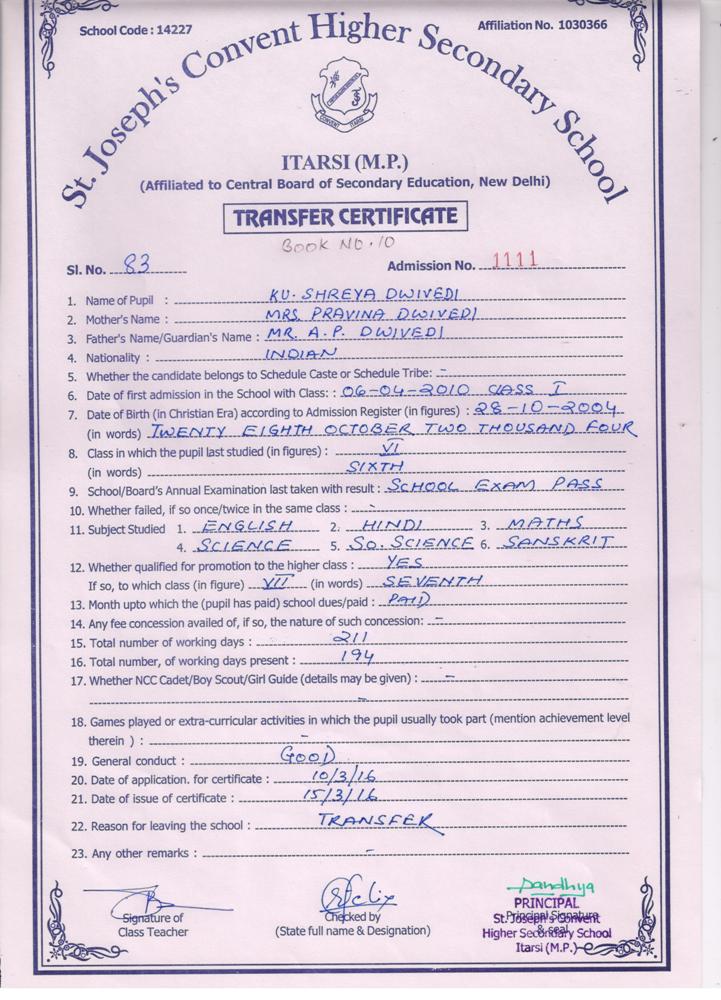 School Code : 14227
Affiliation No. 1030366
St. Joseph's Convent Higher Secondary School
ITARSI (M.P.)
(Affiliated to Central Board of Secondary Education, New Delhi)
TRANSFER CERTIFICATE
BOOK NO. 10
Sl. No. 83
Admission No. 1111
1. Name of Pupil : KU. SHREYA DWIVEDI
2. Mother's Name : MRS PRAVINA DWIVEDI
3. Father's Name/Guardian's Name : MR. A.P. DWIVEDI
4. Nationality : INDIAN
5. Whether the candidate belongs to Schedule Caste or Schedule Tribe: -
6. Date of first admission in the School with Class: : 06-04-2010 CLASS I
7. Date of Birth (in Christian Era) according to Admission Register (in figures) : 28-10-2004
(in words) TWENTY EIGHTH OCTOBER TWO THOUSAND FOUR
8. Class in which the pupil last studied (in figures) : VI
(in words) SIXTH
9. School/Board's Annual Examination last taken with result : SCHOOL EXAM PASS
10. Whether failed, if so once/twice in the same class : -
11. Subject Studied 1. ENGLISH 2. HINDI 3. MATHS
4. SCIENCE 5. SO. SCIENCE 6. SANSKRIT
12. Whether qualified for promotion to the higher class : YES
If so, to which class (in figure) VII (in words) SEVENTH
13. Month upto which the (pupil has paid) school dues/paid : PAID
14. Any fee concession availed of, if so, the nature of such concession: -
15. Total number of working days : 211
16. Total number, of working days present : 194
17. Whether NCC Cadet/Boy Scout/Girl Guide (details may be given) : -
-
18. Games played or extra-curricular activities in which the pupil usually took part (mention achievement level
therein ) : -
19. General conduct : GOOD
20. Date of application. for certificate : 10/3/16
21. Date of issue of certificate : 15/3/16
22. Reason for leaving the school : TRANSFER
23. Any other remarks : -
Signature of
Class Teacher
Checked by
(State full name & Designation)
Sandhya
PRINCIPAL
Principal Signature
& seal
St. Joseph's Convent
Higher Secondary School
Itarsi (M.P.)